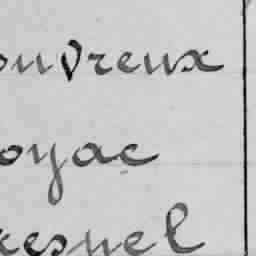 ouvreux
oyac
esnel